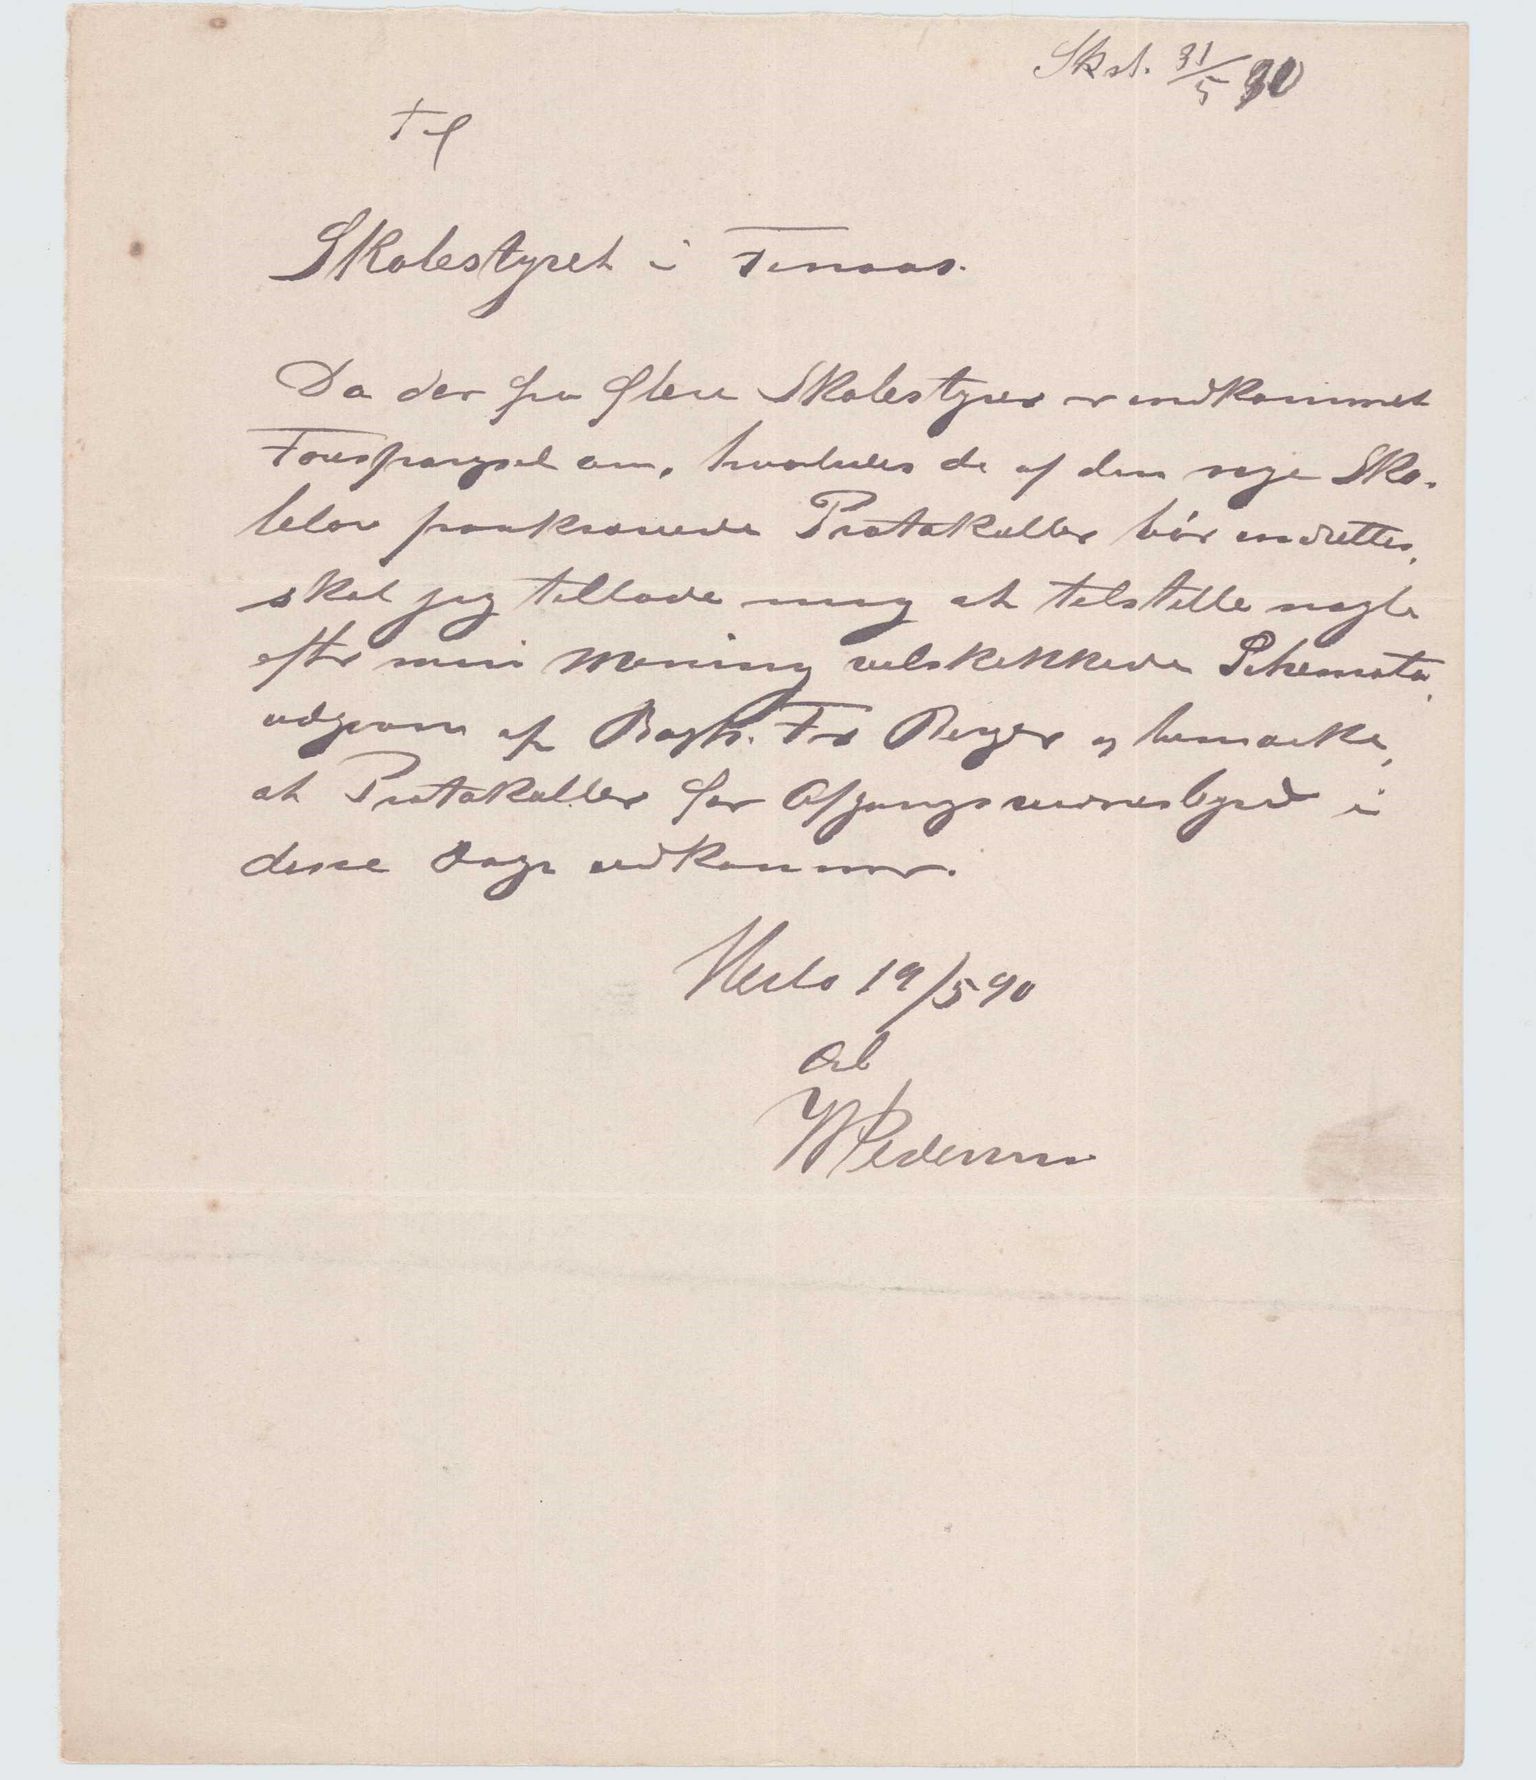 Skst. 31/5 90
Til
Skolestyret i Finaas.
Da der fra flere Skolestyrer er indkommet
Forespørgsel om, hvorledes de af den nye Sko-
lelov paakrævede Protokoller bør indrettes,
skal jeg tillade mig at tilstille nogle
efter min Mening velskikkede Schemata,
udgivne af Bogh. Fr Beyer og bemærke,
at Protokoller for Afgangsvidnesbyrd i
disse Dage udkommer.
Herlø 19/5 90
Arb
Pedersen